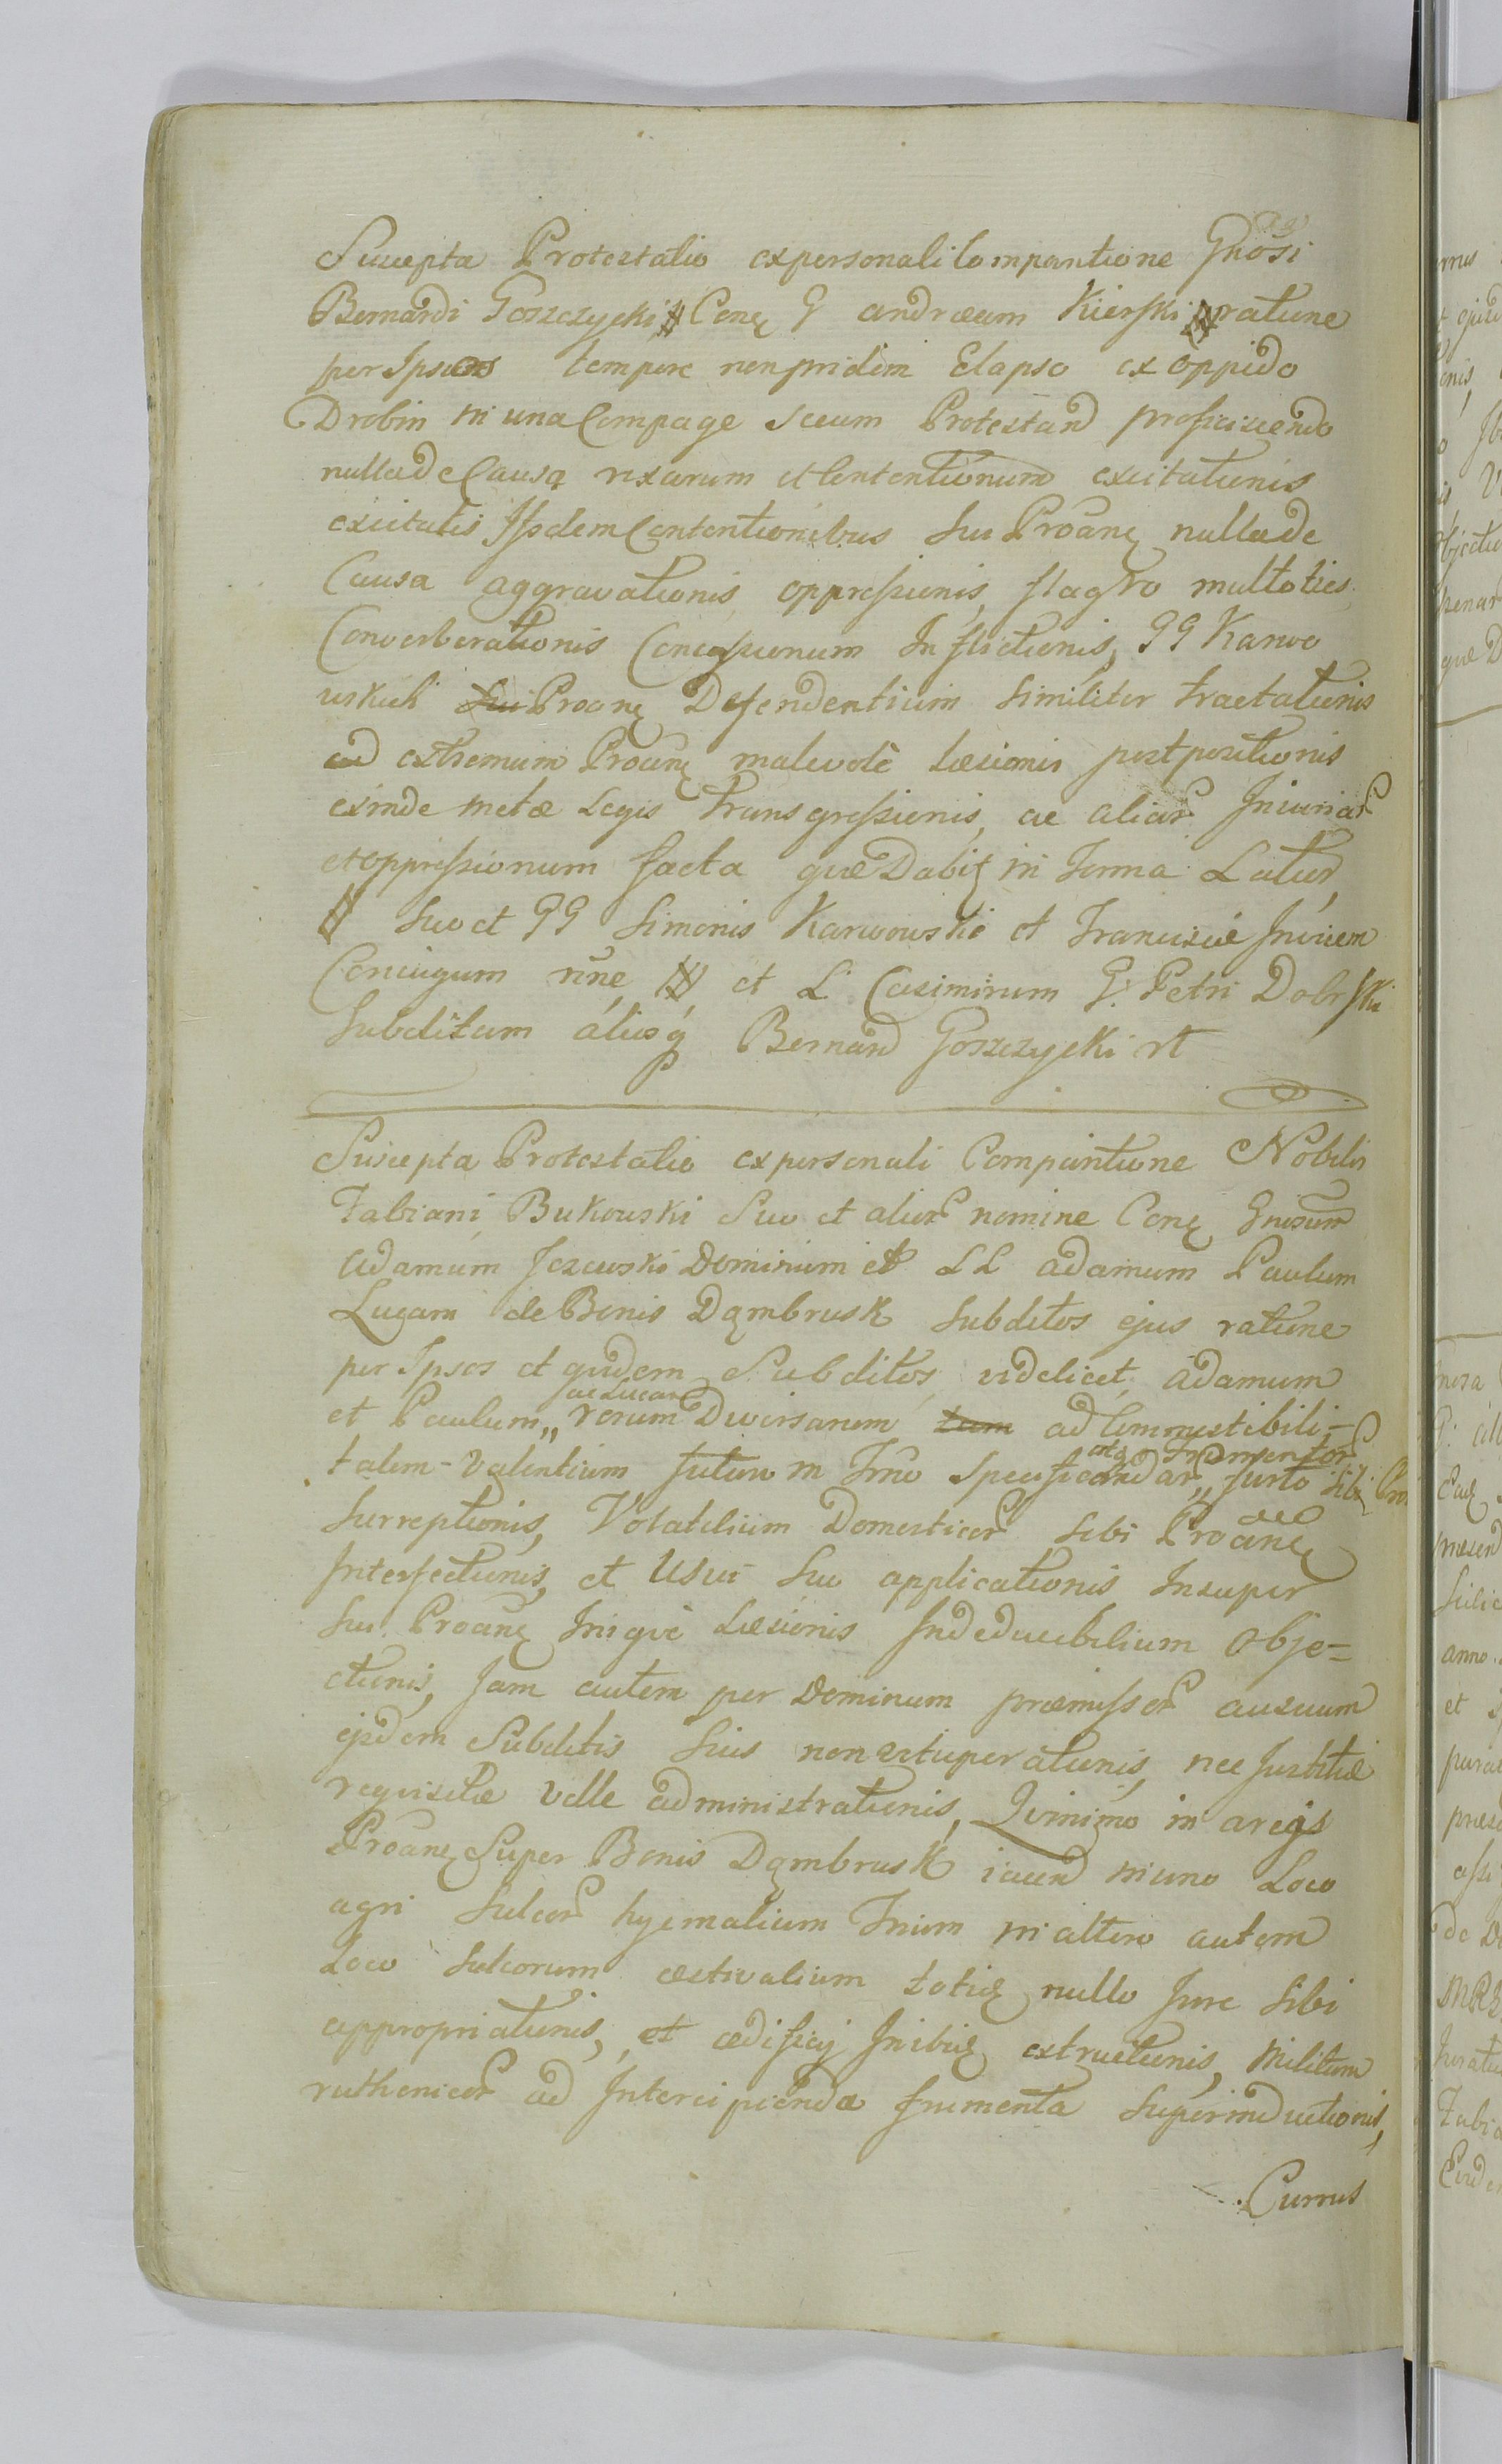 Suscepta Protestatio ex personali Comparitione Gnosi
Bernardi Goszczycki # Conq G andream Kierski # ratione
per Ipsum tempore non pridem Elapso ex oppido
Drobin in una Compage secum Protestand proficiscendo
nulla de Causa rixarum et Contentionum excitationis
excitatis Iisdem Contentionibus sui Proanq nulla de
Causa aggravationis oppressionis, flagro multoties
Converberationis Concussionum Inflictionis, GG Karwo
wskich Proanq Defendentium similiter tractationis
ad extremum Proanq malevole Læsionis postpositionis
exinde metæ Legis transgressionis, ac aliar Iniuriar
et oppressionum facta quæ Dabit in Forma Latior
# Suo et GG Simonis Karwowski et Franciscæ Invicem
Coniugum nne # et L Casimirum G. Petri Dobrski
Subditum aliosq Bernard Goszczycki rt
Suscepta Protestatio ex personali Comparitione Nobilis
Fabiani Bukowski Suo et alior nomine Conq Gnosum
Adamum Jezewski Dominum et LL adamum Paulum
Lucam de Bonis Dąmbrusk Subditos ejus ratione
per Ipsos et quidem Subditos, videlicet, adamum
et Paulum,, ac Lucam rerum Diversarum ad Commestibili-
tatem-Valentium futuro in Tmo specificandar,, atq Frumentor furto sibi
Surreptionis, Volatilium Domesticor sibi Proanq
Interfectionis, et Usui suo applicationis Insuper
sui Proanq Inique Læsionis Indeducibilium Obje=
ctionis, Jam autem per Dominum præmissor ausuum
ejsdem Subditis suis non vituperationis, nec Justitiæ
requisitæ velle administrationis, Quinimo in areis
Proanq Super Bonis Dąmbrusk iacen in uno Loco
agri sulcor hyemalium Trium in altero autem
Loco sulcorum æstivalium totiq nullo Jure sibi
appropriationis, et ædificij Inibiq extructionis, Militum
ruthenicor ad Intercipienda frumenta superinductionis,
Currus